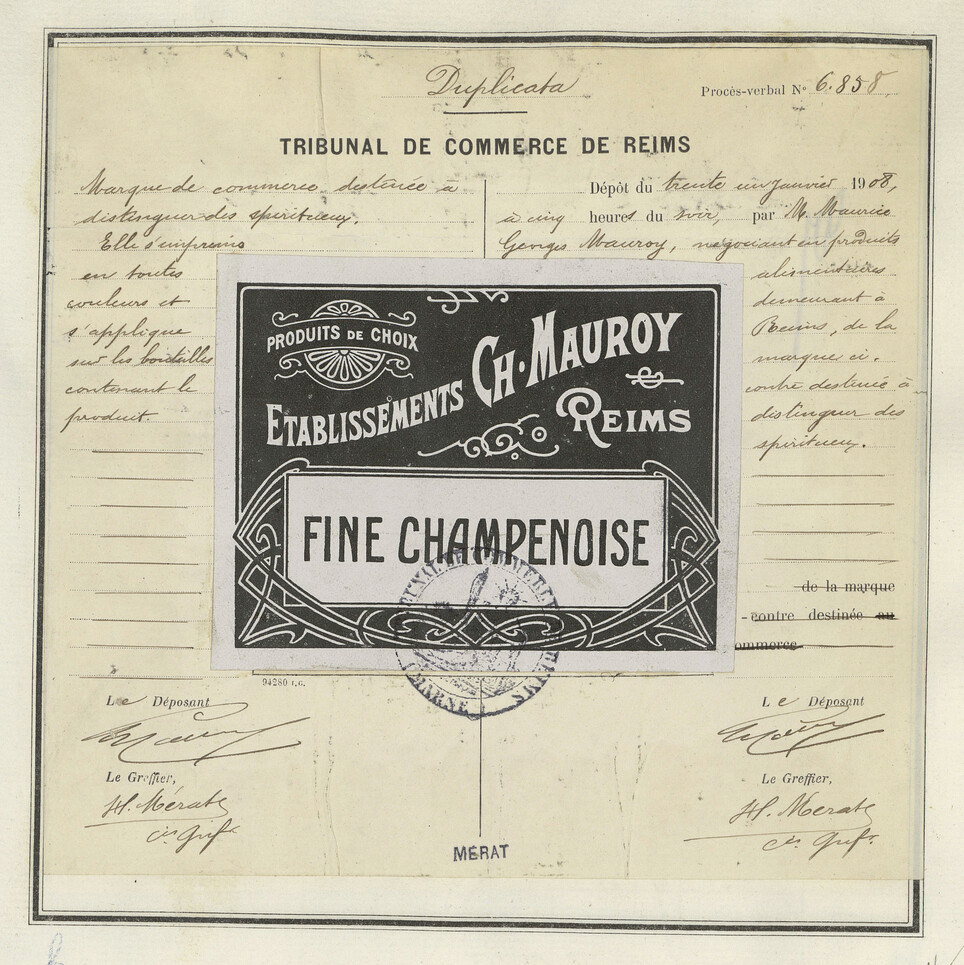 Duplicata
Procès-verbal Nº 6.858
TRIBUNAL DE COMMERCE DE REIMS
Marque de commerce destinée à
distinguer des spiritueux.
Elle s'imprime
en toutes
couleurs et
s'applique
sur les bouteilles
contenant le
produit.
Dépôt du trente un Janvier 1908,
à cinq heures du soir, par M. Maurice
Georges Mauroy, négociant en produits
alimentaires
demeurant à
Reims, de la
marque ci-
contre destinée à
distinguer des
spiritueux.
de la marque
-contre destinée au
ommerce
PRODUITS DE CHOIX
ETABLISSEMENTS CH. MAUROY
REIMS
FINE CHAMPENOISE
TRIBUNAL DE COMMERCE
REIMS
(MARNE)
94280 I.G.
Le Déposant
Le Greffier,
H. Mérat
Le Déposant
Le Greffier,
H. Merat
MÉRAT